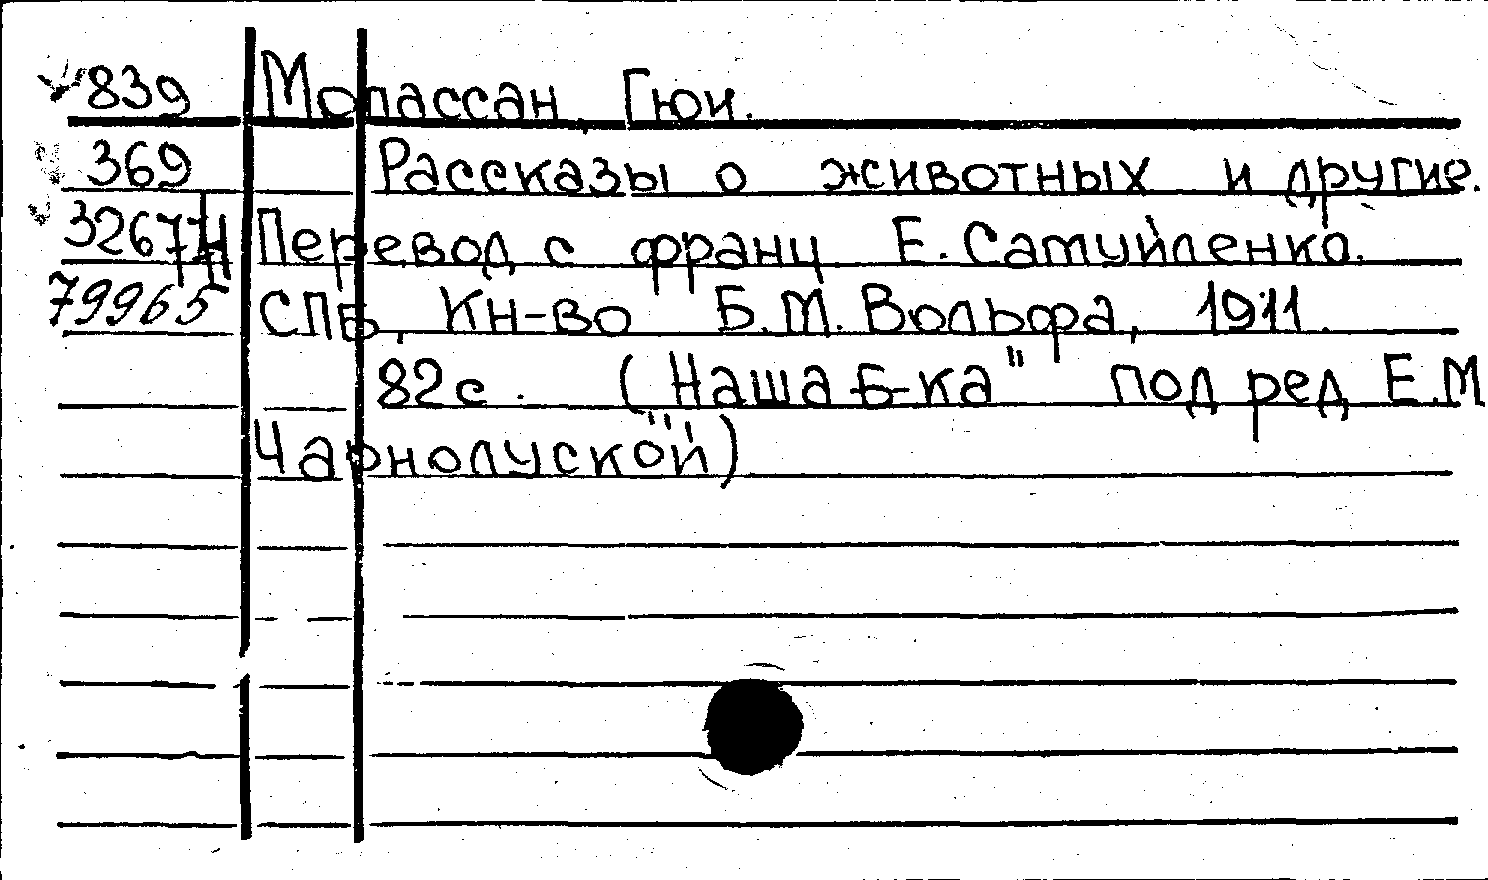 839 Мопассан, Гюи.
369 Рассказы о животных и другие.
Перевод с франц Е. Самуйленко.
79965 СПБ, Кн-во Б.М. Вольфа, 1911.
82с. (Наша Б-ка" под ред Е.М
Чарнолуской)